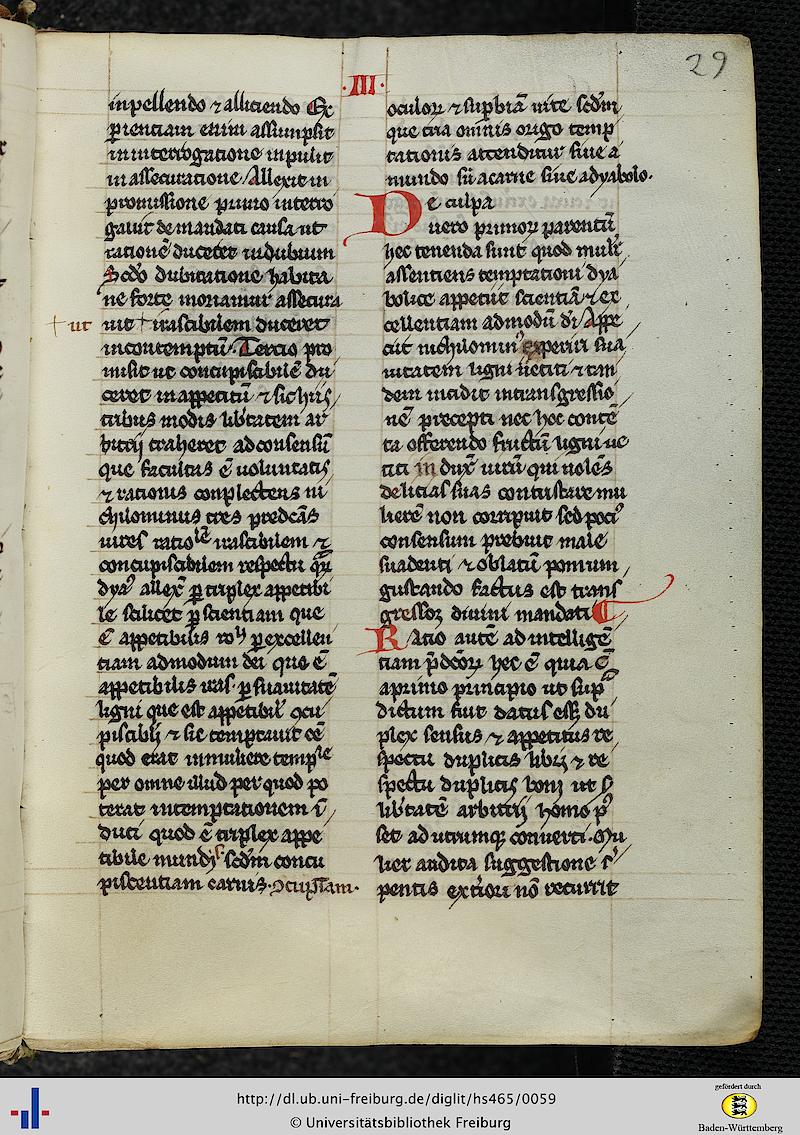 ·III·
29
inpellendo ⁊ alliciendo Ex
perienciam enim assumpsit
in interrogatione inpulit
in assecuratione Allexit in
promissione primo interro
gauit de mandati causa ut
rationē duceret in dubium
Scdo dubitatione habita
ne forte moriamur assecura
+ ut
uit + irascibilem duceret
in contemptū· Tercio pro
misit ut concupiscibilē du
ceret in appetitū ⁊ sic hiis
tribus modis libtatem ar
bitrij traheret ad consensū
que facultas ē voluntatis
⁊ rationis conplectens ni
chilominus tres predcās
uires ratiolē irascibilem ⁊
concupiscibilem respectu qrū
dya⁹ allex̄ p triplex appetibi
le scilicet p scientiam que
ē appetibilis p excellen
tiam ad modum dei que ē
appetibilis iras· p suauitatē
ligni que est appetibil' ꝯcu
piscibli ⁊ sic temptauit oē
quod erat in muliere temple
per omne illud per quod po
terat in temptationem ī
duci quod ē triplex appe
tibile mundi scdm concu
piscentiam carnis· ꝯcupiam·
oculoꝝ ⁊ supbiā uite scdm
que tria omnis origo temp
tationis attenditur siue a
mundo siū a carne siue a dyabolo·
De culpa
uero primoꝝ parentū
hec tenenda sunt quod mulr̄
assentiens temptationi dya
bolice appetiit scientiā ⁊ ex
cellentiam ad modū di Appe
ciit nichilomin⁹ experiri sua
uitatem ligni uetiti ⁊ tan
dem incidit in transgressio
nē precepti nec hoc contē
ta offerendo fructū ligni ue
titi in dux̄ uirū qui nolēs
delicias suas contristare mu
lierē non corripuit sed poci⁹
consensum prebuit male
suadenti ⁊ oblatū pomum
gustando factus est trans
gressoꝝ diuini mandati
Ratio autē ad intelligē
tiam pdcōꝝ hec ē quia ē
a primo principio ut sup
dictum siue datus ess du
plex sensus ⁊ appetitus re
spectu duplicis libij ⁊ re
spectu duplicis boni ut p
libtatē arbitrij homo pos
set ad utrumqꝫ conuerti· Mu
lier audita suggestione s
pentis exteriori nō recurrit
http://dl.ub.uni-freiburg.de/diglit/hs465/0059
© Universitätsbibliothek Freiburg
gefördert durch
Baden-Württemberg